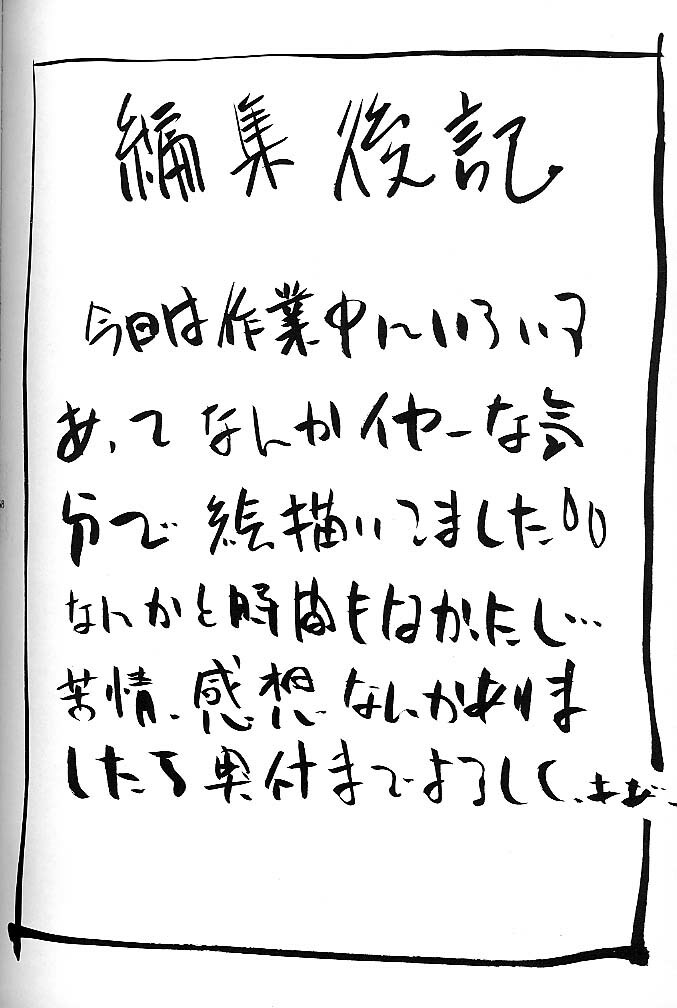 編集後記
今回は作業中にいろいろ
あってなんかイヤーな気
分で絵描いてました
なんかと時間もなかったし…
苦情、感想なんかありま
したら奥付までよろしく、